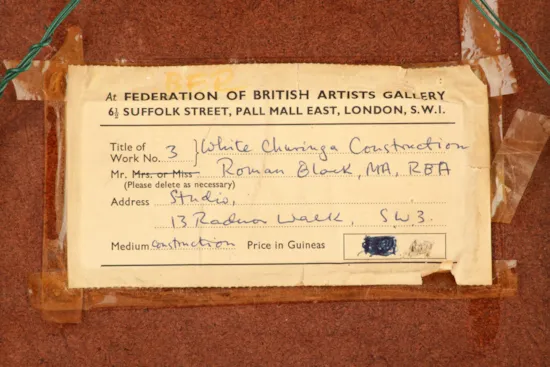 RED
At FEDERATION OF BRITISH ARTISTS GALLERY
6½ SUFFOLK STREET, PALL MALL EAST, LONDON, S.W.1.
Title of
Work No. 3 } White Churinga Construction
Mr. Mrs. or Miss Roman Black, MA, RBA
(Please delete as necessary)
Address Studio,
13 Radnor Walk, SW3.
Medium construction Price in Guineas